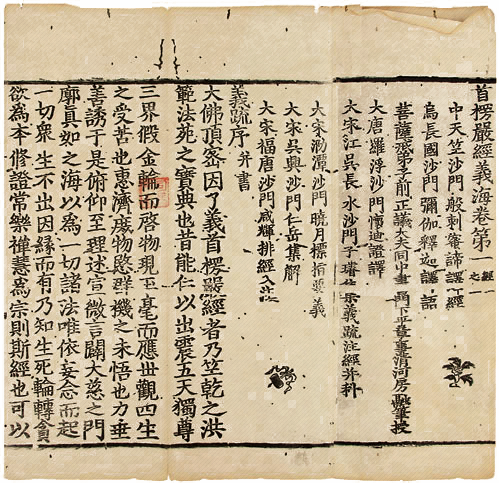 首楞嚴經義海卷第一 經之一
中天竺沙門般剌蜜諦譯經
烏長國沙門彌伽釋迦譯語
菩薩戒弟子前正議大夫同中書門下平章事清河房融筆授
大唐羅浮沙門懷迪證譯
大宋江吳長水沙門子璿集義疏注經并科
大宋泐潭沙門曉月標指要義
大宋吳興沙門仁岳集解
大宋福唐沙門咸輝排經入疏
義疏序 并書
大佛頂密因了義首楞嚴經者乃竺乾之洪
範法苑之寶典也昔能仁以出震五天獨尊
三界假金輪而啓物現玉毫而應世觀四生
之受苦也惠濟庶物愍群機之未悟也力垂
善誘于是俯仰至理述宣微言闢大慈之門
廓真如之海以為一切諸法唯依妄念而起
一切衆生不出因緣而有乃知生死輪轉貪
欲為本修證常樂禪慧為宗則斯經也可以